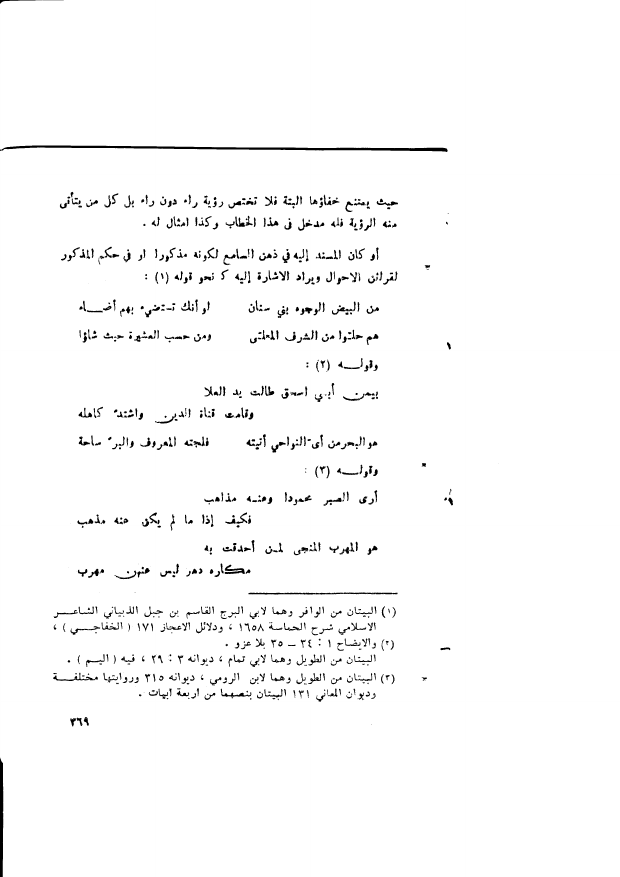 حيث يمتنع خفاؤها البتة فلا تختص رؤية راء دون راء بل كل من يتأتى
منه الرؤية فله مدخل فى هذا الخطاب وكذا امثال له .
أو كان المسند إليه في ذهن السامع لكونه مذكورا او فى حكم المذكور
لقرائن الاحوال ويراد الاشارة إليه كـ نحو قوله (١) :
من البيض الوجوه بني سنان لو أنك تستضيء بهم أضـــاء
هم حلتوا من الشرف المعلتى ومن حسب العشيرة حيث شاؤا
وقولــــه (٢) :
بيمن أبي اسحق طالت يد العلا
وقامت قناة الدين واشتد كاهله
هو البحر من أى النواحي أتيته فلجته المعروف والبر ساحة
وقولــــه (٣) :
أرى الصبر محمودا وعنه مذاهب
فكيف إذا ما لم يكن عنه مذهب
هو المهرب المنجى لمن أحدقت به
مكاره دهر ليس عنهن مهرب
(١) البيتان من الوافر وهما لابي البرج القاسم بن جبل الذبياني الشاعــر
الاسلامي شرح الحماسة ١٦٥٨ ، ودلائل الاعجاز ١٧١ ( الخفاجــي ) ،
(٢) والايضاح ١ : ٣٤ – ٣٥ بلا عزو .
البيتان من الطويل وهما لابي تمام ، ديوانه ٣ : ٢٩ ، فيه ( اليم ) .
(٣) البيتان من الطويل وهما لابن الرومي ، ديوانه ٣١٥ وروايتها مختلفــة
وديوان المعاني ١٣١ البيتان بنصهما من اربعة ابيات .
٣٦٩